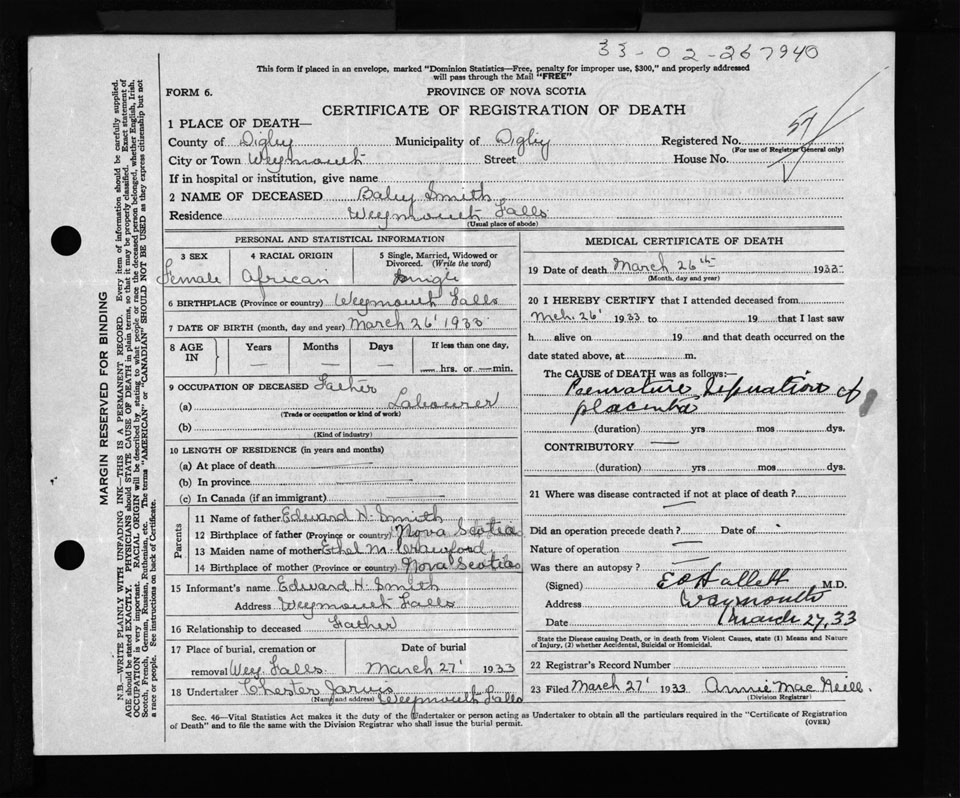 33-02-267940
This form if placed in an envelope, marked "Dominion Statistics—Free, penalty for improper use, $300," and properly addressed
will pass through the Mail "FREE"
FORM 6.
PROVINCE OF NOVA SCOTIA
CERTIFICATE OF REGISTRATION OF DEATH
1 PLACE OF DEATH—
County of Digby Municipality of Digby Registered No. 57
(For use of Registrar General only)
City or Town Weymouth Street House No.
If in hospital or institution, give name
2 NAME OF DECEASED Baby Smith
Residence Weymouth Falls
(Usual place of abode)
PERSONAL AND STATISTICAL INFORMATION
3 SEX 4 RACIAL ORIGIN 5 Single, Married, Widowed or
Divorced. (Write the word)
Female African Single
6 BIRTHPLACE (Province or country) Weymouth Falls
7 DATE OF BIRTH (month, day and year) March 26' 1933
8 AGE IN Years Months Days If less than one day,
hrs. or min.
9 OCCUPATION OF DECEASED Father
(a) Labourer
(Trade or occupation or kind of work)
(b)
(Kind of industry)
10 LENGTH OF RESIDENCE (in years and months)
(a) At place of death
(b) In province
(c) In Canada (if an immigrant)
Parents
11 Name of father Edward H. Smith
12 Birthplace of father (Province or country) Nova Scotia
13 Maiden name of mother Ethel M. Crawford
14 Birthplace of mother (Province or country) Nova Scotia
15 Informant's name Edward H. Smith
Address Weymouth Falls
16 Relationship to deceased Father
17 Place of burial, cremation or Date of burial
removal Wey. Falls March 27' 1933
18 Undertaker Chester Jarvis
(Name and address) Weymouth Falls
MEDICAL CERTIFICATE OF DEATH
19 Date of death March 26th 1933
(Month, day and year)
20 I HEREBY CERTIFY that I attended deceased from
Mch. 26' 1933 to 19 that I last saw
h alive on 19 and that death occurred on the
date stated above, at m.
The CAUSE of DEATH was as follows:—
Premature Separation of
placenta
(duration) yrs mos dys.
CONTRIBUTORY
(duration) yrs mos dys.
21 Where was disease contracted if not at place of death?
Did an operation precede death? Date of
Nature of operation
Was there an autopsy?
(Signed) E O Hallett M.D.
Address Weymouth
Date March 27, 33
State the Disease causing Death, or in death from Violent Causes, state (1) Means and Nature
of Injury, (2) whether Accidental, Suicidal or Homicidal.
22 Registrar's Record Number
23 Filed March 27' 1933 Annie Mac Neill.
(Division Registrar)
Sec. 46—Vital Statistics Act makes it the duty of the Undertaker or person acting as Undertaker to obtain all the particulars required in the "Certificate of Registration
of Death" and to file the same with the Division Registrar who shall issue the burial permit.
(OVER)
MARGIN RESERVED FOR BINDING
N.B.—WRITE PLAINLY WITH UNFADING INK—THIS IS A PERMANENT RECORD. Every item of information should be carefully supplied.
AGE should be stated EXACTLY. PHYSICIANS should STATE CAUSE OF DEATH in plain terms, so that it may be properly classified. Exact statement of
OCCUPATION is very important. RACIAL ORIGIN will be described by stating to what people or race the deceased person belonged, whether English, Irish,
Scotch, French, German, Russian, Ruthenian, etc. The terms "AMERICAN" or "CANADIAN" SHOULD NOT BE USED as they express citizenship but not
a race or people. See instructions on back of Certificate.